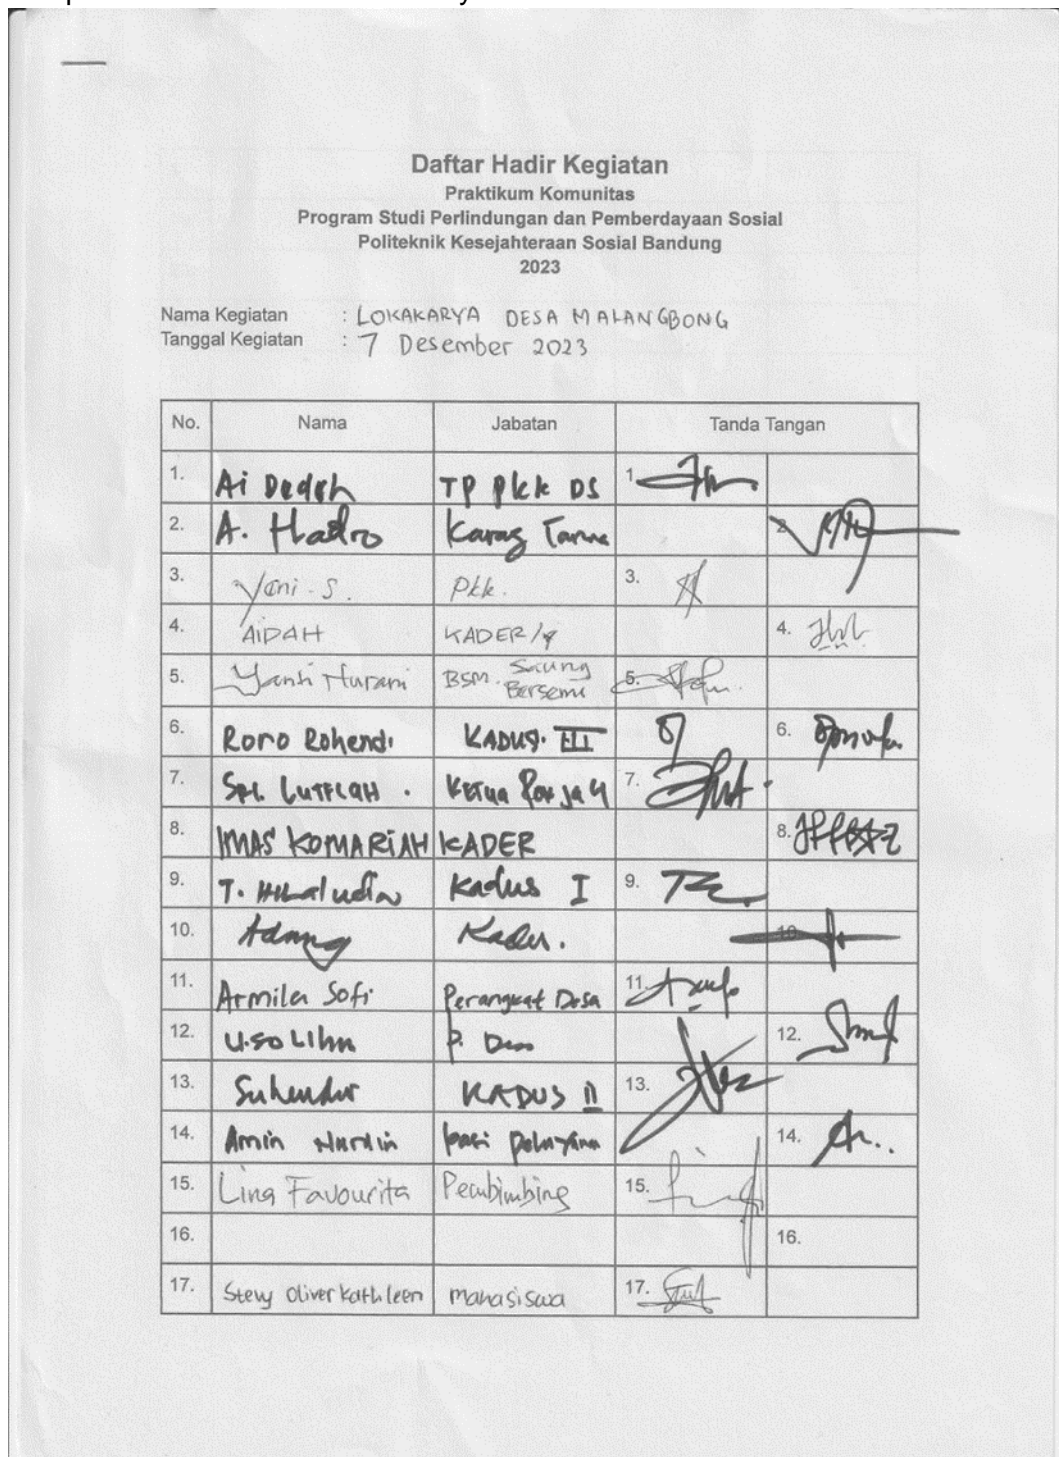 Daftar Hadir Kegiatan
Praktikum Komunitas
Program Studi Perlindungan dan Pemberdayaan Sosial
Politeknik Kesejahteraan Sosial Bandung
2023
Nama Kegiatan : LOKAKARYA DESA MALANGBONG
Tanggal Kegiatan : 7 Desember 2023
No. Nama Jabatan Tanda Tangan
1. Ai Dedeh TP PKK DS 1.
2. A. Hadro Karag 2.
3. Yeni . S. Pkk. 3.
4. AIDAH KADER 4.
5. Yanti BSM. Saung Bersemi 5.
6. Roro Rohendi KADUS. III 6.
7. LUTFIAH . Ketua 7.
8. IMAS KOMARIAH KADER 8.
9. T. Kadus I 9.
10. Adang Kader. 10
11. Armila Sofi Perangkat Desa 11.
12. U. P. Desa 12.
13. Suhendar KADUS II 13.
14. Amin Nurdin 14.
15. Lina Favourita Pembimbing 15.
16. 16.
17. Stevy Oliver Kathleen mahasiswa 17.